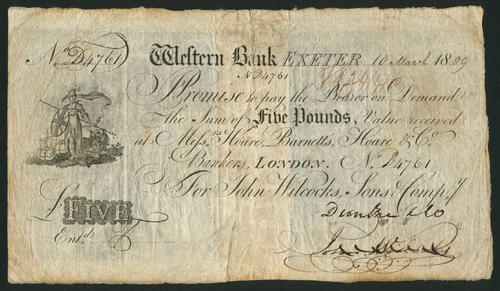 No D4761 Western Bank EXETER 10 March 1809
No D4761
I Promise to pay the Bearer on Demand
the Sum of Five Pounds, Value received
at Messrs Hoare, Barnetts, Hoare & Co
Bankers, LONDON. No D4761
For John Wilcocks, Sons & Compy
£ FIVE
Entd